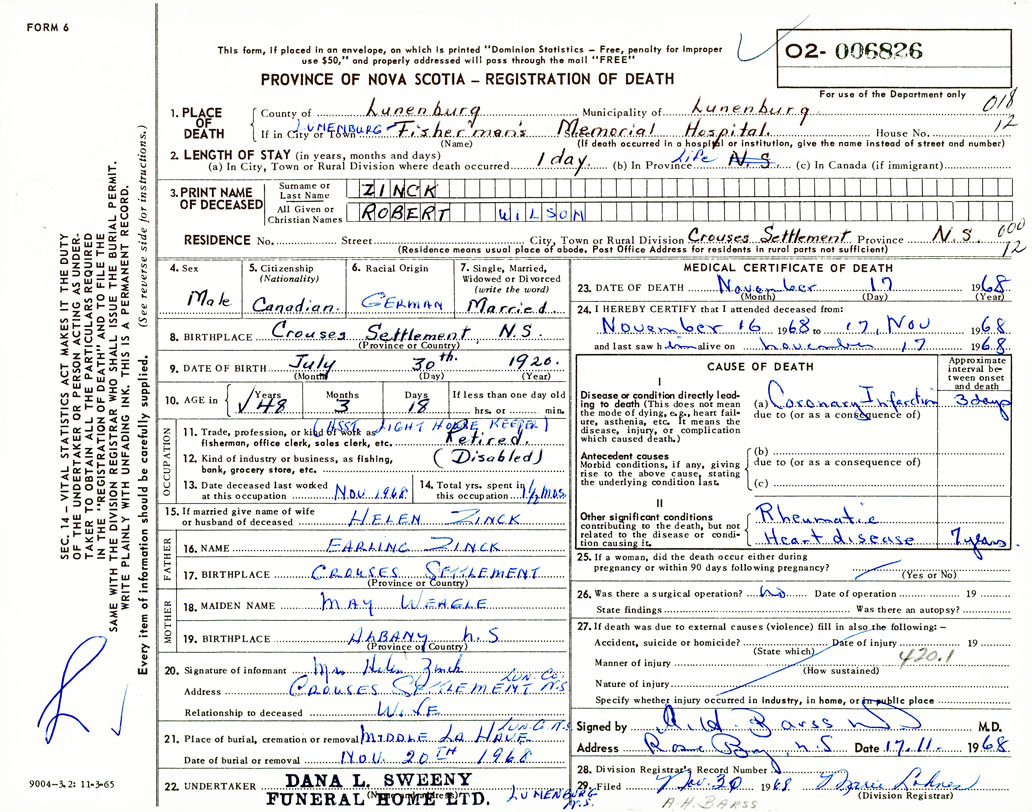 FORM 6
This form, if placed in an envelope, on which is printed "Dominion Statistics – Free, penalty for improper
use $50," and properly addressed will pass through the mail "FREE"
O2- 006826
PROVINCE OF NOVA SCOTIA – REGISTRATION OF DEATH
For use of the Department only
018
12
1. PLACE OF DEATH
County of Lunenburg Municipality of Lunenburg
If in City or Town LUNENBURG Fisherman's Memorial Hospital. House No.
(Name) (If death occurred in a hospital or institution, give the name instead of street and number)
2. LENGTH OF STAY (in years, months and days)
(a) In City, Town or Rural Division where death occurred 1 day. (b) In Province Life N.S (c) In Canada (if immigrant)
3. PRINT NAME OF DECEASED
Surname or Last Name ZINCK
All Given or Christian Names ROBERT WILSON
RESIDENCE No. Street City, Town or Rural Division Crouses Settlement Province N.S.
000
12
(Residence means usual place of abode. Post Office Address for residents in rural parts not sufficient)
4. Sex Male
5. Citizenship (Nationality) Canadian.
6. Racial Origin GERMAN
7. Single, Married, Widowed or Divorced (write the word) Married.
8. BIRTHPLACE Crouses Settlement N.S.
(Province or Country)
9. DATE OF BIRTH July 30th. 1920.
(Month) (Day) (Year)
10. AGE in Years 48 Months 3 Days 18 If less than one day old hrs. or min.
OCCUPATION
11. Trade, profession, or kind of work as (ASST LIGHT HOUSE KEEPER)
fisherman, office clerk, sales clerk, etc. Retired.
12. Kind of industry or business, as fishing, (Disabled)
bank, grocery store, etc.
13. Date deceased last worked at this occupation NOV 1968
14. Total yrs. spent in this occupation 1½ mos.
15. If married give name of wife or husband of deceased HELEN ZINCK
FATHER
16. NAME EARLING ZINCK
17. BIRTHPLACE CROUSES SETTLEMENT
(Province or Country)
MOTHER
18. MAIDEN NAME MAY WEAGLE
19. BIRTHPLACE ALBANY N.S
(Province or Country)
20. Signature of informant Mrs Helen Zinck
Address CROUSES SETTLEMENT LUN. CO. N.S
Relationship to deceased WIFE
21. Place of burial, cremation or removal MIDDLE LA HAVE LUN. Co N.S.
Date of burial or removal NOV. 20TH 1968
22. UNDERTAKER DANA L. SWEENY
(Name and address)
FUNERAL HOME LTD. LUNENBURG N.S.
MEDICAL CERTIFICATE OF DEATH
23. DATE OF DEATH November 17 1968
(Month) (Day) (Year)
24. I HEREBY CERTIFY that I attended deceased from:
November 16 1968 to 17, Nov 1968
and last saw him alive on November 17 1968.
CAUSE OF DEATH
Approximate interval between onset and death
I
Disease or condition directly leading to death (This does not mean the mode of dying, e.g., heart failure, asthenia, etc. It means the disease, injury, or complication which caused death.)
(a) Coronary Infarction 3 days
due to (or as a consequence of)
Antecedent causes
Morbid conditions, if any, giving rise to the above cause, stating the underlying condition last.
(b)
due to (or as a consequence of)
(c)
II
Other significant conditions contributing to the death, but not related to the disease or condition causing it.
Rheumatic
Heart disease 7 years.
25. If a woman, did the death occur either during
pregnancy or within 90 days following pregnancy?
(Yes or No)
26. Was there a surgical operation? no Date of operation 19
State findings Was there an autopsy?
27. If death was due to external causes (violence) fill in also the following: –
Accident, suicide or homicide? Date of injury 19
(State which)
420.1
Manner of injury
(How sustained)
Nature of injury
Specify whether injury occurred in Industry, in home, or in public place
Signed by A.H. Barss MD M.D.
Address Rose Bay N.S Date 17.11. 1968
28. Division Registrar's Record Number
29. Filed Nov. 30 1968
(Division Registrar)
A.H. BARSS
SEC. 14 – VITAL STATISTICS ACT MAKES IT THE DUTY
OF THE UNDERTAKER OR PERSON ACTING AS UNDER-
TAKER TO OBTAIN ALL THE PARTICULARS REQUIRED
IN THE "REGISTRATION OF DEATH" AND TO FILE THE
SAME WITH THE DIVISION REGISTRAR WHO SHALL ISSUE THE BURIAL PERMIT.
WRITE PLAINLY WITH UNFADING INK. THIS IS A PERMANENT RECORD.
Every item of information should be carefully supplied. (See reverse side for instructions.)
9004–3.2: 11-3-65